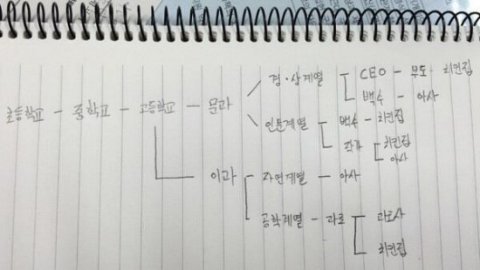 경·상계열 CEO - 부도 - 치킨집
백수 - 아사
초등학교 - 중학교 - 고등학교 - 문과
인문계열 백수 - 치킨집
작가 치킨집
아사
이과 - 자연계열 - 아사
공학계열 - 과로 과로사
치킨집